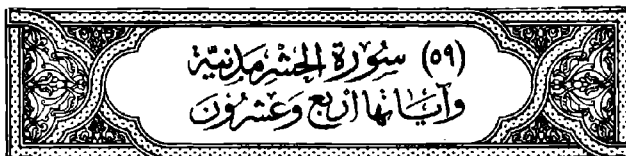 (٥٩) سُورَة الحَشْرِ مَدَنِيَّة
وَآيَاتُهَا أَرْبَعٌ وَعِشْرُونَ